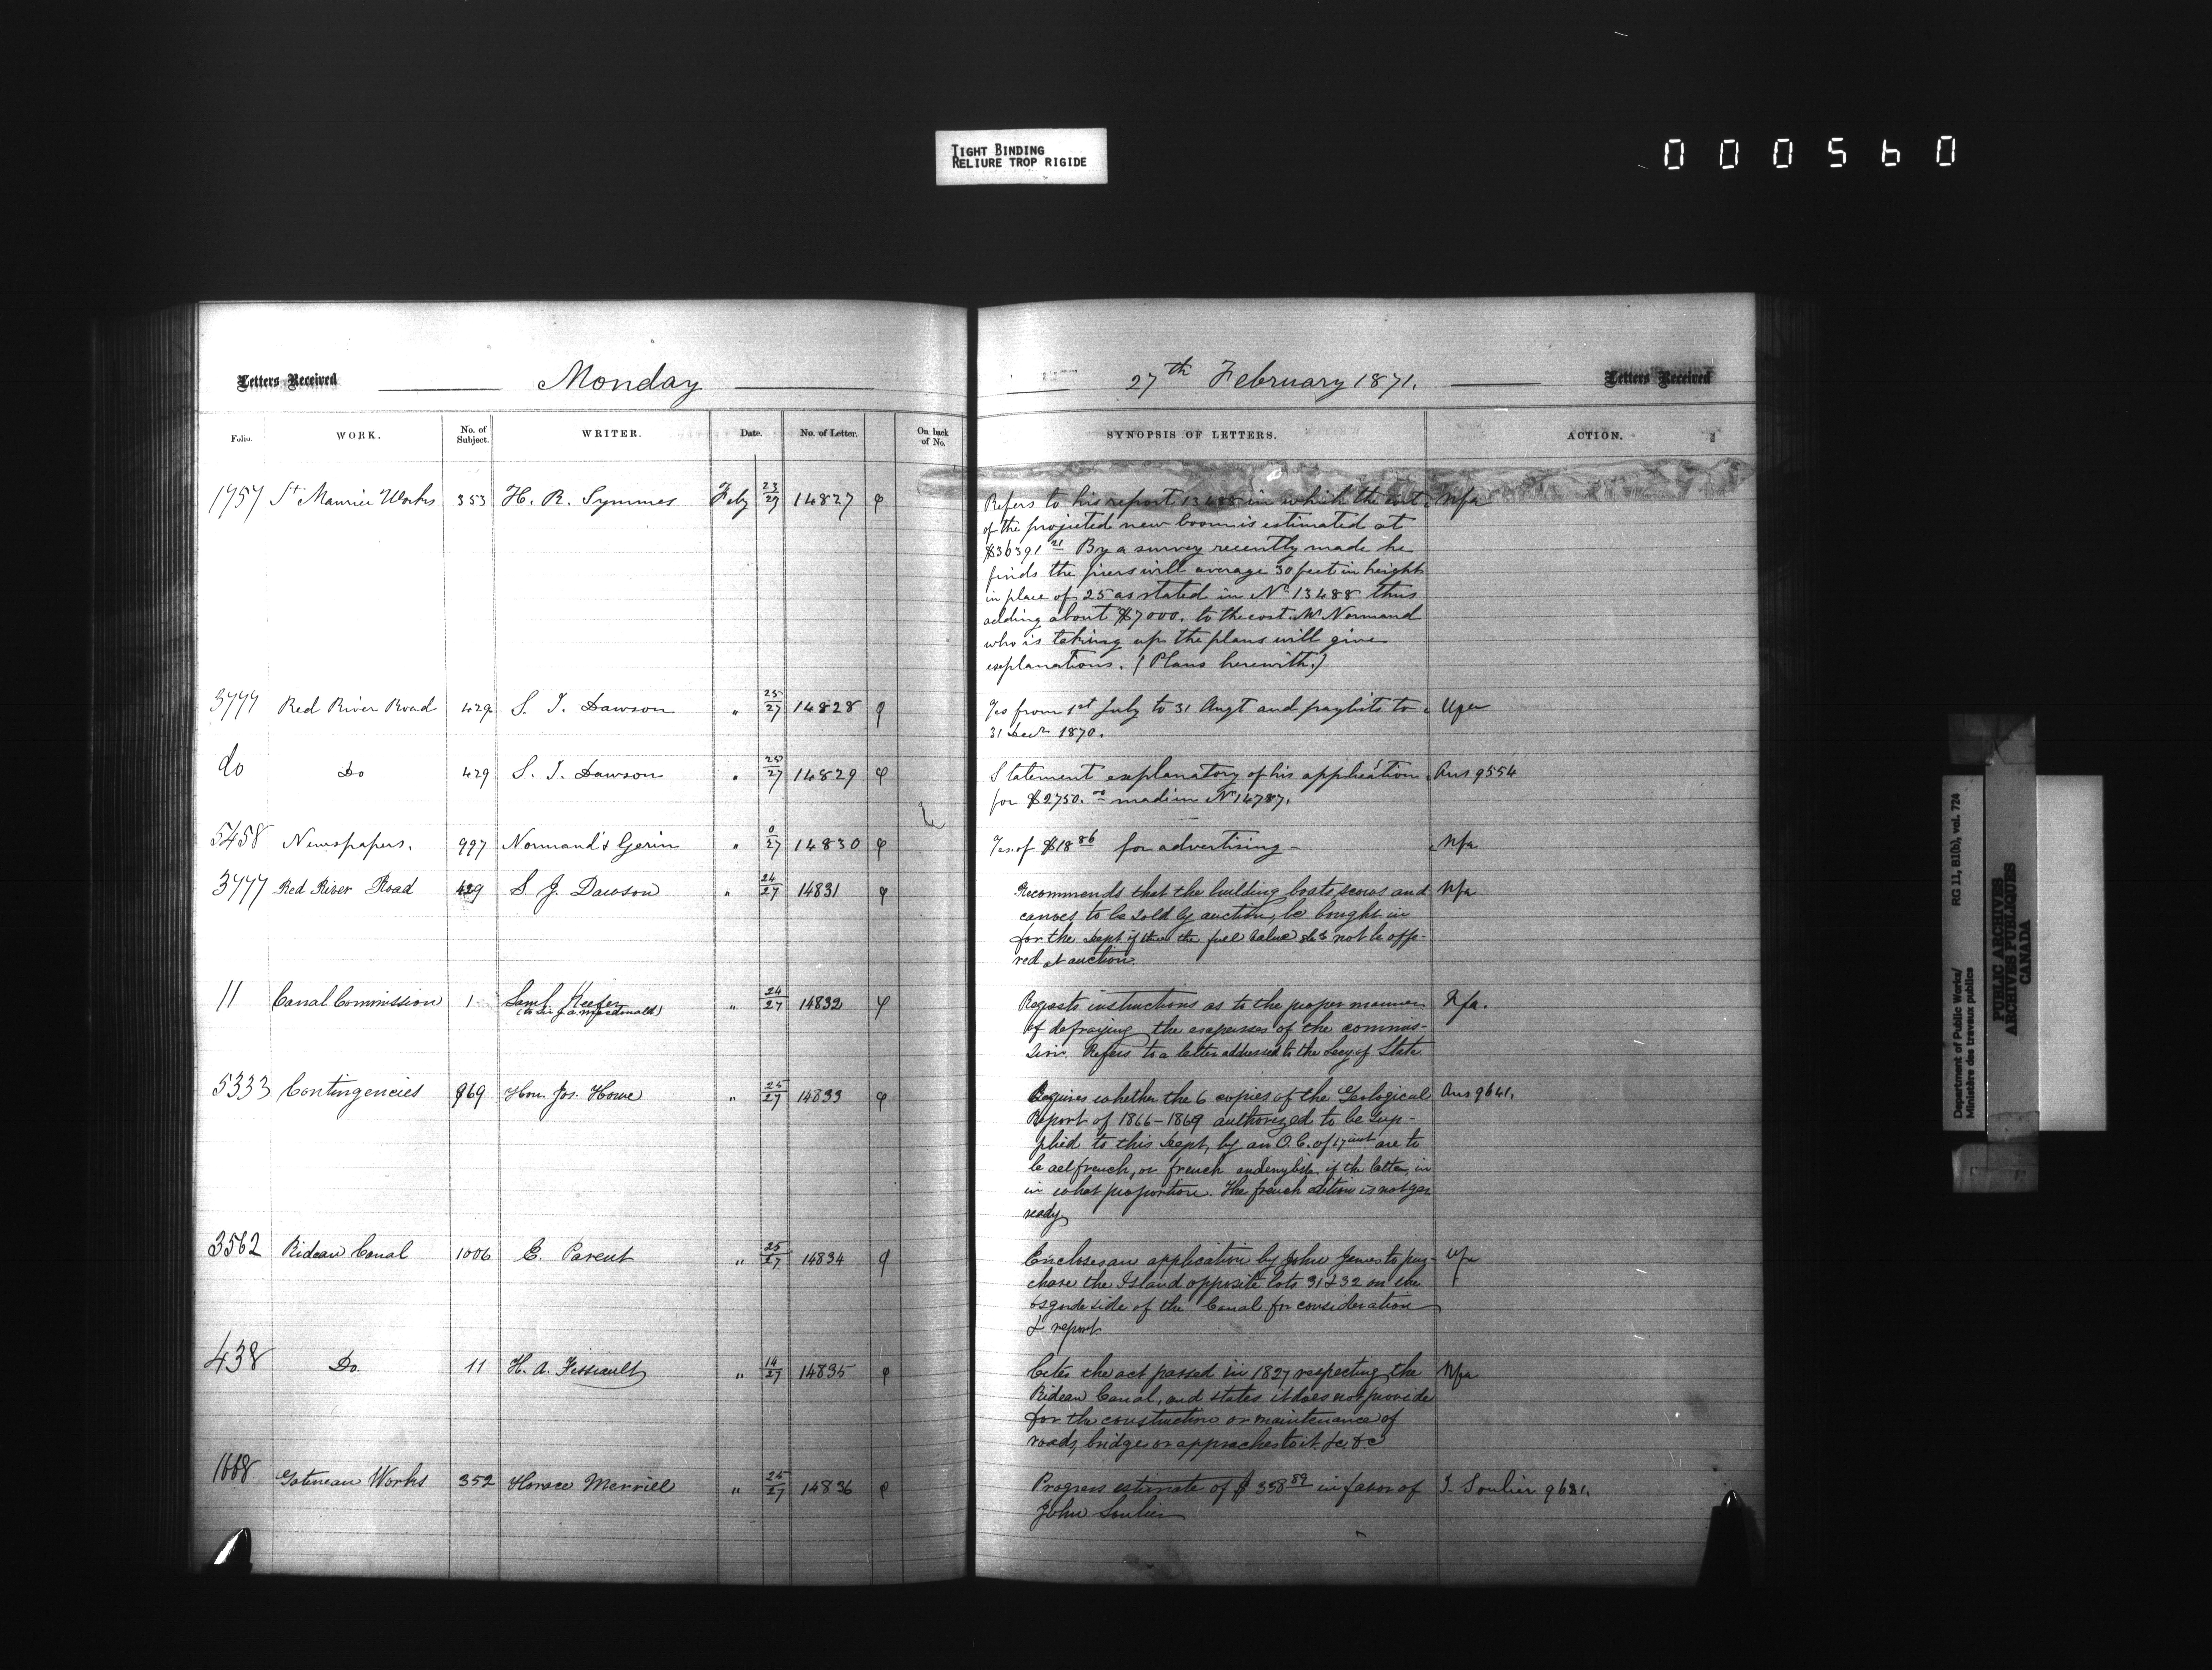 TIGHT BINDING
RELIURE TROP RIGIDE
000560
Letters Received Monday
Folio. WORK. No. of Subject. WRITER. Date. No. of Letter. On back of No.
1757 St Maurice Works 353 H. R. Symmes Feby 23/27 14827
3777 Red River Road 429 S. J. Dawson " 25/27 14828
do Do 429 S. J. Dawson " 25/27 14829
5458 Newspapers. 997 Normand & Gerin " 0/27 14830
3777 Red River Road 429 S. J. Dawson " 24/27 14831
11 Canal Commission 1 Saml. Keefer " 24/27 14832
(to Sir J. A. Macdonald)
5333 Contingencies 969 Hon. Jos. Howe " 25/27 14833
3562 Rideau Canal 1006 E. Parent " 25/27 14834
438 Do. 11 H. A. Fissiault " 14/27 14835
1668 Gatineau Works 352 Horace Merrill " 25/27 14836
27th February 1871. Letters Received
SYNOPSIS OF LETTERS. ACTION.
Refers to his report 13488 in which the cost Nfa
of the projected new boom is estimated at
$36391 21 By a survey recently made he
finds the piers will average 30 feet in height
in place of 25 as stated in No 13488 thus
adding about $7000. to the cost. Mr Normand
who is taking up the plans will give
explanations. (Plans herewith.)
from 1st July to 31 Augt and paylists to
31 Decr 1870.
Statement explanatory of his application Ans 9554
for $2750.00 made in No 14787.
of $18 86 for advertising - Nfa
Recommends that the building boats, scows and Nfa
canoes to be sold by auction, be bought in
for the Dept. if the full value not be offe-
red at auction
Requests instructions as to the proper manner Nfa.
of defraying the expenses of the commis-
sion. Refers to a letter addressed to the Secy of State
Enquires whether the 6 copies of the Geological Ans 9641.
Report of 1866-1869 authorized to be sup-
plied to this Dept, by an O.C. of 17 inst are to
be all french, or french and english, if the latter, in
in what proportion. The french edition is not yet
ready
Encloses an application by John James to pur-
chase the Island opposite lots 31 & 32 on the
Osgoode side of the Canal for consideration
& report
Cites the act passed in 1827 respecting the Nfa
Rideau Canal, and states it does not provide
for the construction or maintenance of
roads, bridges or approaches to it &c &c
Progress estimate of $358 89 in favor of J. Soulier 9631.
John Soulier
Department of Public Works/
Ministère des travaux publics
RG 11, B1(b), vol. 724
PUBLIC ARCHIVES
ARCHIVES PUBLIQUES
CANADA